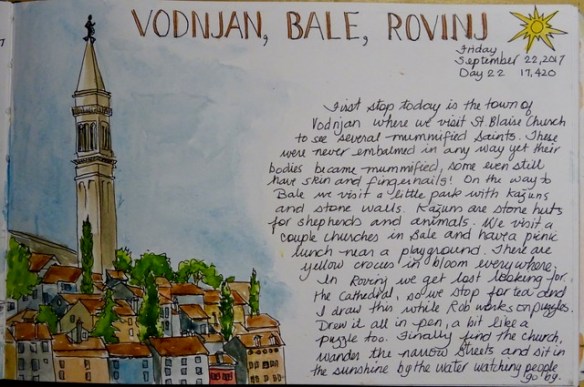 VODNJAN, BALE, ROVINJ
Friday
September 22, 2017
Day 22 17,420
First stop today is the town of
Vodnjan where we visit St. Blaise Church
to see several mummified Saints. These
were never embalmed in any way yet their
bodies became mummified, some even still
have skin and fingernails! On the way to
Bale we visit a little park with Kažuns
and stone walls. Kažuns are stone huts
for shepherds and animals. We visit a
couple churches in Bale and have a picnic
lunch near a playground. There are
yellow crocus in bloom everywhere.
In Rovinj we get lost looking for
the Cathedral, so we stop for tea and
I draw this while Rob works on puzzles.
Drew it all in pen, a bit like a
puzzle too. Finally find the church,
wander the narrow streets and sit in
the sunshine by the water watching people
go by.